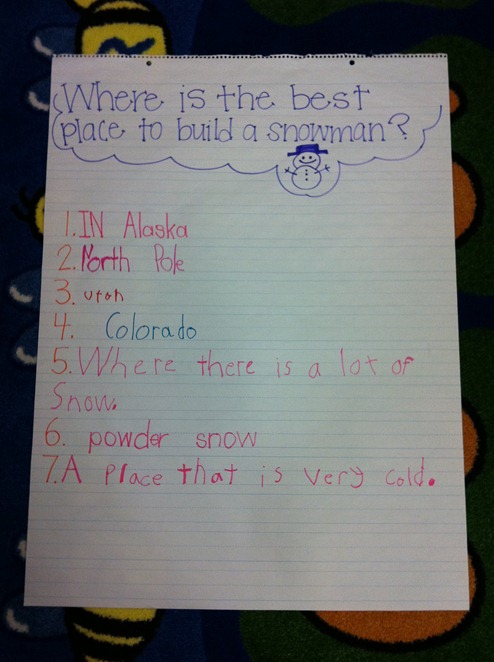 Where is the best
place to build a snowman?
1. IN Alaska
2. North Pole
3. utah
4. Colorado
5. Where there is a lot of
Snow.
6. powder snow
7. A Place that is very cold.